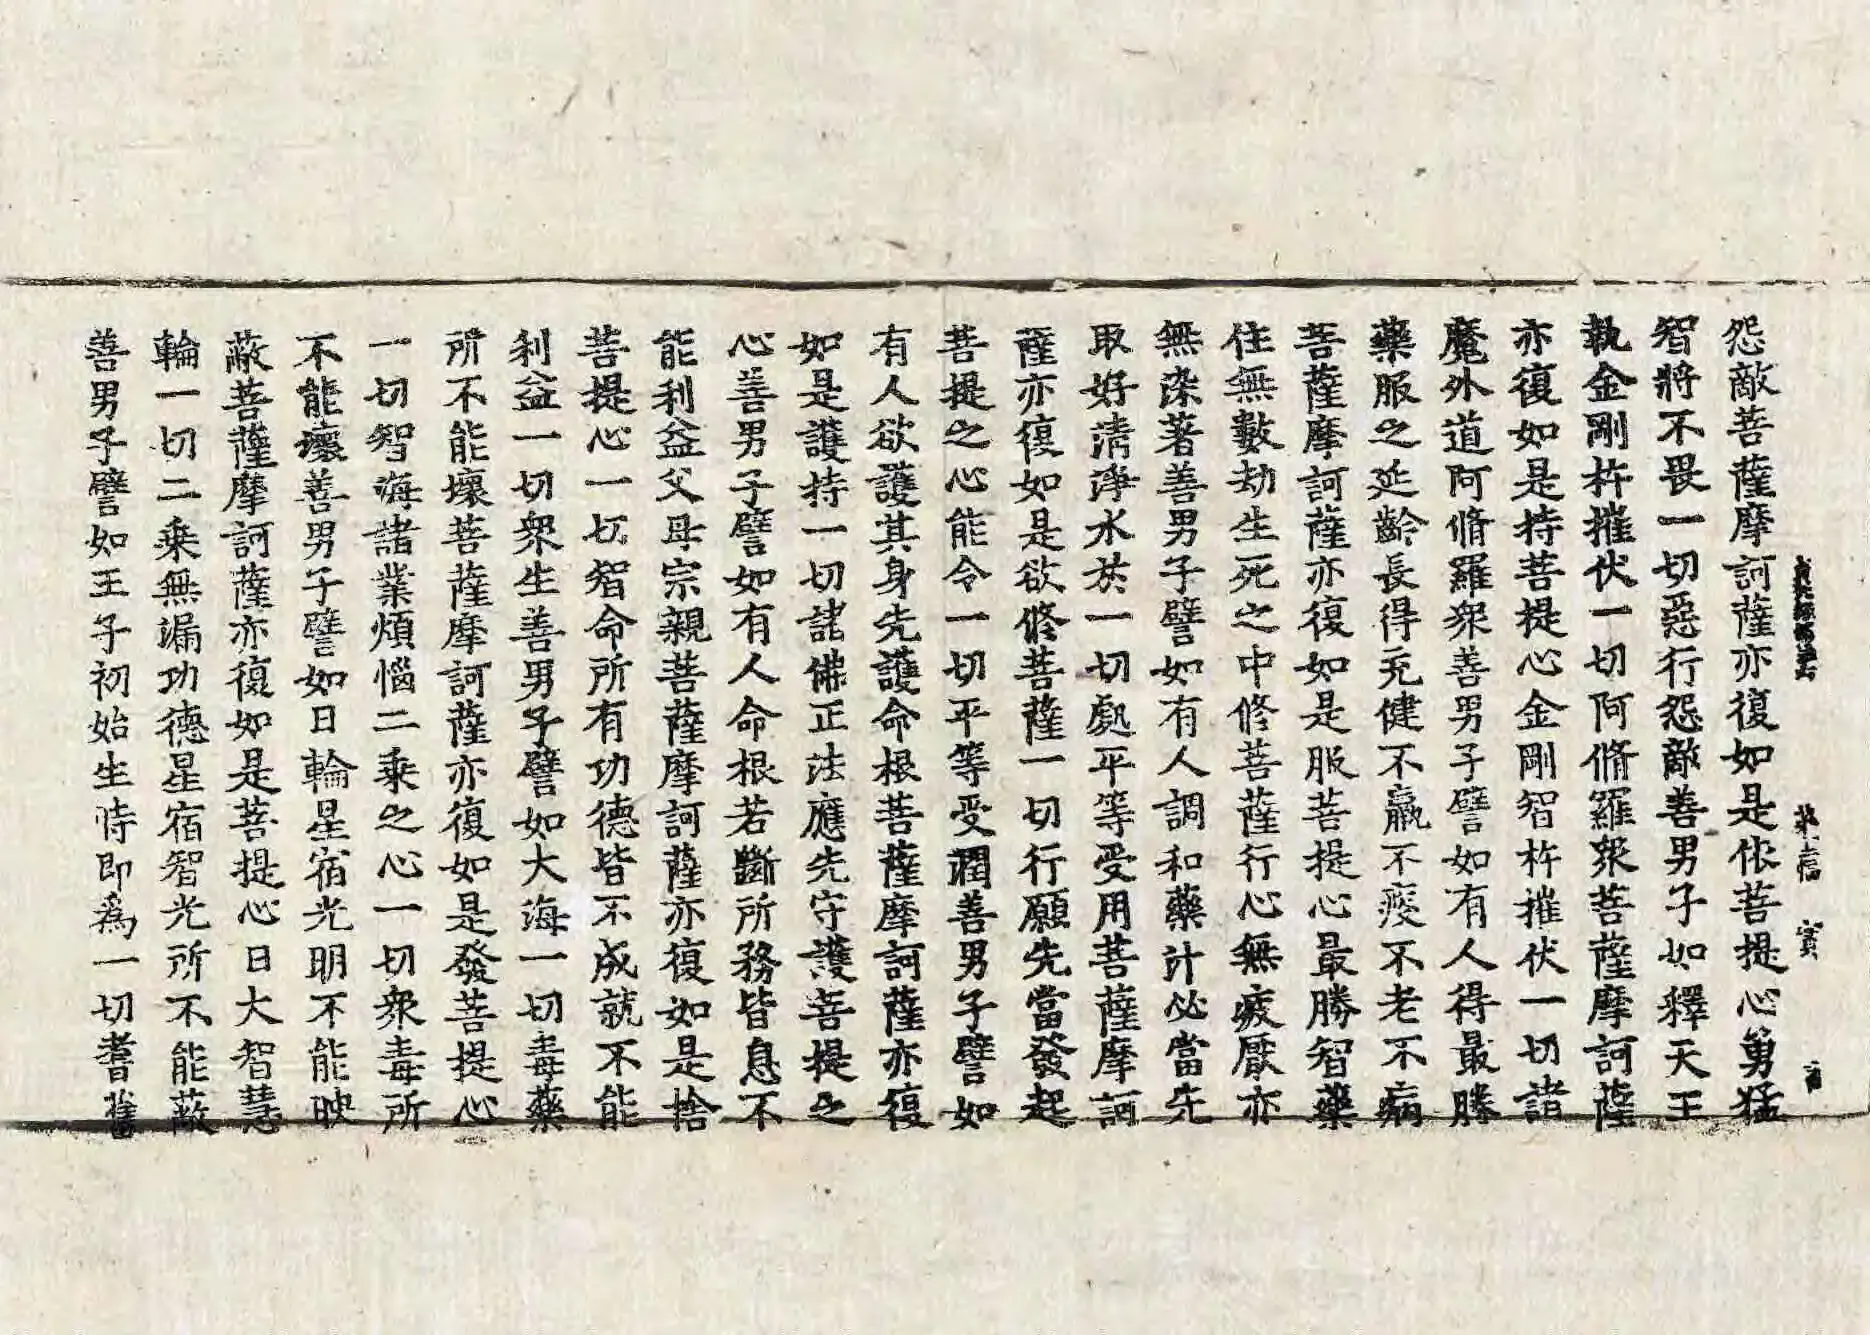 怨敵菩薩摩訶薩亦復如是依菩提心勇猛
智將不畏一切惡行怨敵善男子如釋天王
執金剛杵摧伏一切阿脩羅眾菩薩摩訶薩
亦復如是持菩提心金剛智杵摧伏一切諸
魔外道阿脩羅眾善男子譬如有人得最勝
藥服之延齡長得充健不羸不瘦不老不病
菩薩摩訶薩亦復如是服菩提心最勝智藥
住無數劫生死之中修菩薩行心無疲厭亦
無染著善男子譬如有人調和藥計必當先
取好清淨水於一切處平等受用菩薩摩訶
薩亦復如是欲修菩薩一切行願先當發起
菩提之心能令一切平等受潤善男子譬如
有人欲護其身先護命根菩薩摩訶薩亦復
如是護持一切諸佛正法應先守護菩提之
心善男子譬如有人命根若斷所務皆息不
能利益父母宗親菩薩摩訶薩亦復如是捨
菩提心一切智命所有功德皆不成就不能
利益一切眾生善男子譬如大海一切毒藥
所不能壞菩薩摩訶薩亦復如是發菩提心
一切智海諸業煩惱二乘之心一切眾毒所
不能壞善男子譬如日輪星宿光明不能映
蔽菩薩摩訶薩亦復如是菩提心日大智慧
輪一切二乘無漏功德星宿智光所不能蔽
善男子譬如王子初始生時即為一切耆舊